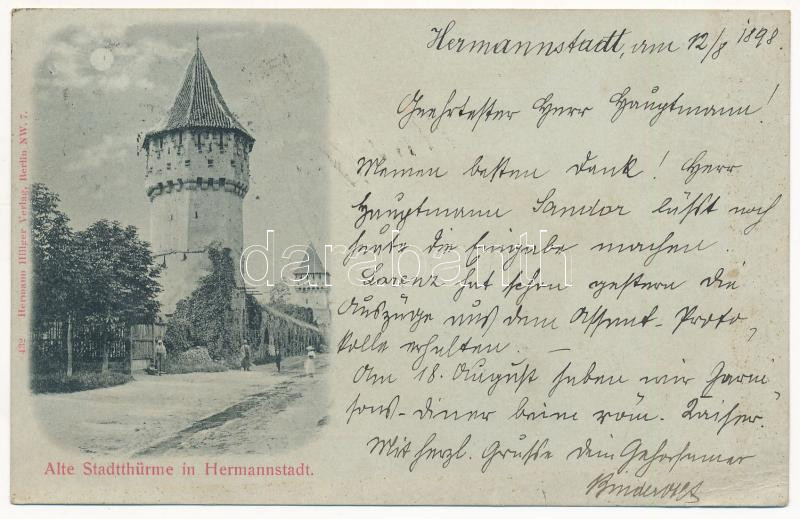 Hermannstadt, am 12/8 1898.
Geehrtester Herr Hauptmann!
Meinen besten Dank! Herr
Hauptmann Sandor läßt noch
heute die Eingabe machen.
Lorenz hat schon gestern die
Auszüge aus dem Assent-Proto-
kolle erhalten. —
Am 18. August haben wir Garni-
sons-Diner beim röm. Kaiser.
Mit herzl. Gruße Dein Gehorsamer
432 Hermann Hillger Verlag, Berlin NW. 7.
Alte Stadtthürme in Hermannstadt.
darabanth